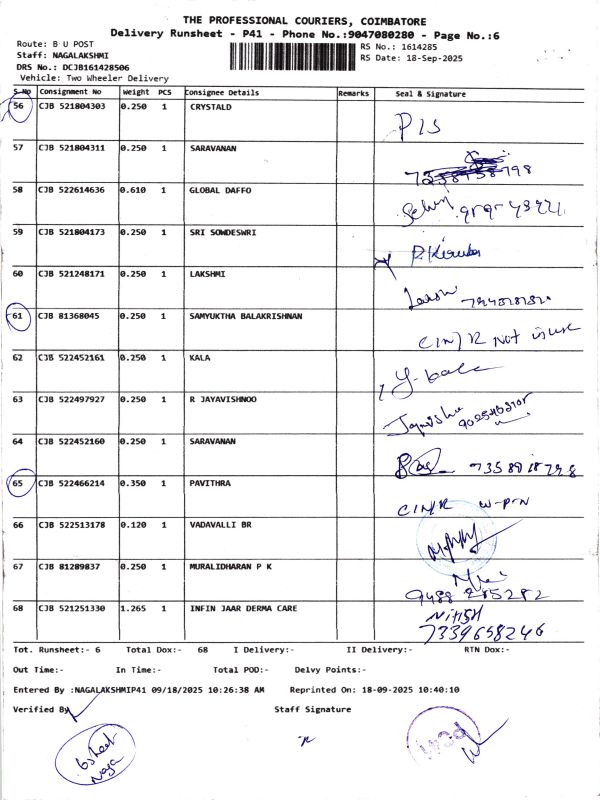 THE PROFESSIONAL COURIERS, COIMBATORE
Delivery Runsheet - P41 - Phone No.:9047080280 - Page No.:6
Route: B U POST
Staff: NAGALAKSHMI
DRS No.: DCJB161428506
Vehicle: Two Wheeler Delivery
RS No.: 1614285
RS Date: 18-Sep-2025
S.No Consignment No Weight PCS Consignee Details Remarks Seal & Signature
56 CJB 521804303 0.250 1 CRYSTALD P1S
57 CJB 521804311 0.250 1 SARAVANAN
58 CJB 522614636 0.610 1 GLOBAL DAFFO Selvi
59 CJB 521804173 0.250 1 SRI SOWDESWRI
60 CJB 521248171 0.250 1 LAKSHMI
61 CJB 81368045 0.250 1 SAMYUKTHA BALAKRISHNAN C/N/R Not in use
62 CJB 522452161 0.250 1 KALA
63 CJB 522497927 0.250 1 R JAYAVISHNOO
64 CJB 522452160 0.250 1 SARAVANAN
65 CJB 522466214 0.350 1 PAVITHRA C/N/R W-P-N
66 CJB 522513178 0.120 1 VADAVALLI BR
67 CJB 81289837 0.250 1 MURALIDHARAN P K 9488 285282
68 CJB 521251330 1.265 1 INFIN JAAR DERMA CARE NITISH
7339658246
Tot. Runsheet:- 6 Total Dox:- 68 I Delivery:- II Delivery:- RTN Dox:-
Out Time:- In Time:- Total POD:- Delvy Points:-
Entered By :NAGALAKSHMIP41 09/18/2025 10:26:38 AM Reprinted On: 18-09-2025 10:40:10
Verified By Staff Signature
6 sheet
Naga